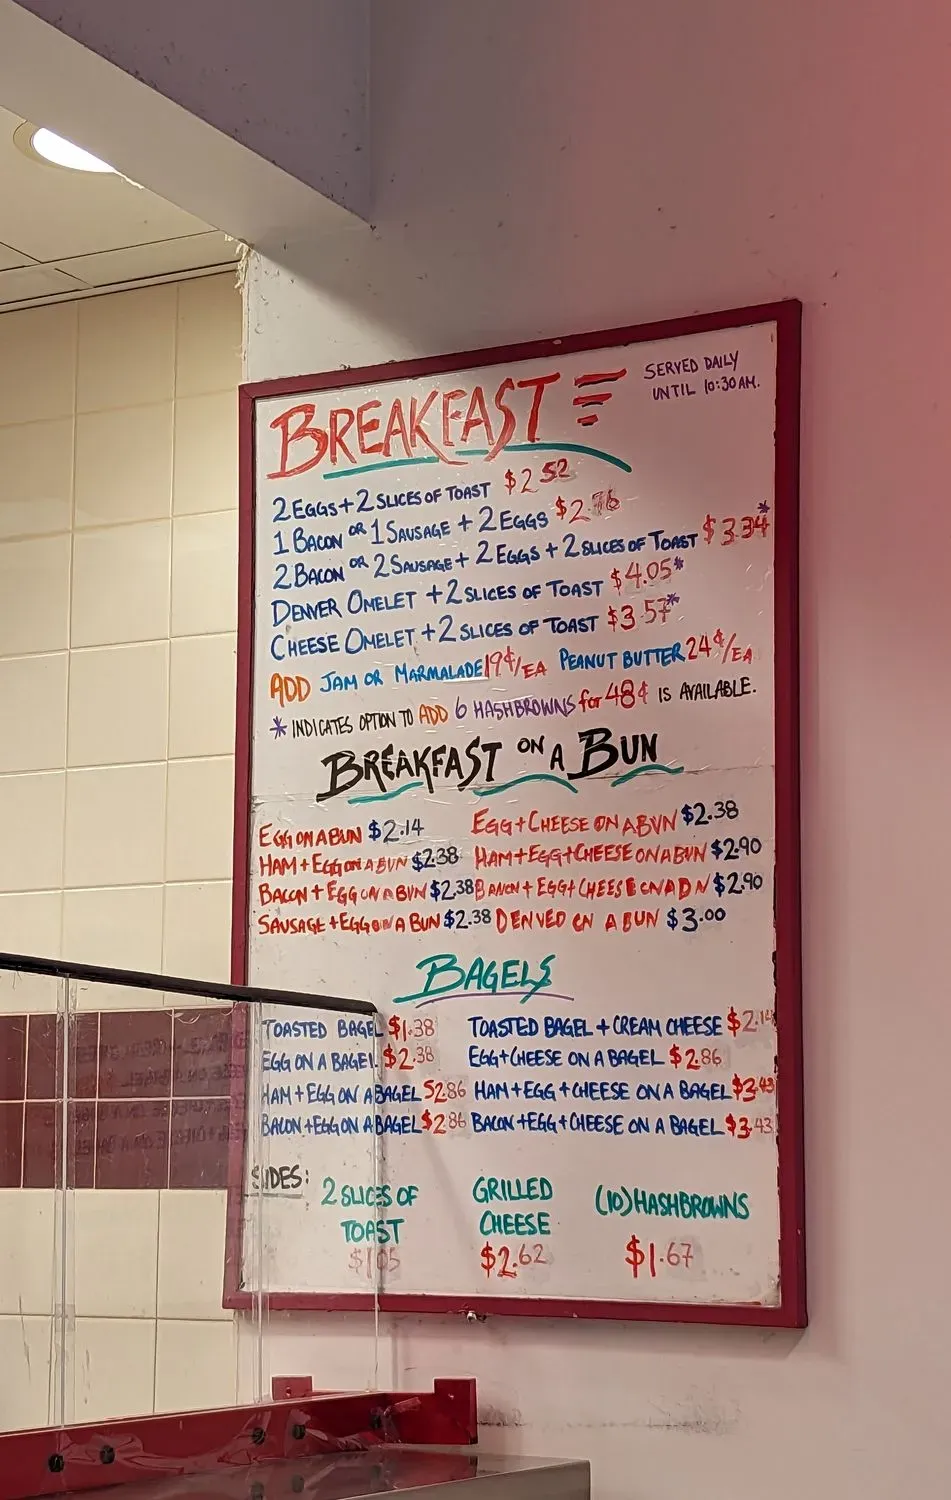 BREAKFAST
SERVED DAILY
UNTIL 10:30AM.
2 EGGS + 2 SLICES OF TOAST $2.52
1 BACON OR 1 SAUSAGE + 2 EGGS $2.76
2 BACON OR 2 SAUSAGE + 2 EGGS + 2 SLICES OF TOAST $3.34*
DENVER OMELET + 2 SLICES OF TOAST $4.05*
CHEESE OMELET + 2 SLICES OF TOAST $3.57*
ADD JAM OR MARMALADE 19¢/EA PEANUT BUTTER 24¢/EA
* INDICATES OPTION TO ADD 6 HASHBROWNS for 48¢ IS AVAILABLE.
BREAKFAST ON A BUN
EGG ON A BUN $2.14 EGG + CHEESE ON A BUN $2.38
HAM + EGG ON A BUN $2.38 HAM + EGG + CHEESE ON A BUN $2.90
BACON + EGG ON A BUN $2.38 BACON + EGG + CHEESE ON A BUN $2.90
SAUSAGE + EGG ON A BUN $2.38 DENVED ON A BUN $3.00
BAGELS
TOASTED BAGEL $1.38 TOASTED BAGEL + CREAM CHEESE $2.14
EGG ON A BAGEL $2.38 EGG + CHEESE ON A BAGEL $2.86
HAM + EGG ON A BAGEL $2.86 HAM + EGG + CHEESE ON A BAGEL $3.43
BACON + EGG ON A BAGEL $2.86 BACON + EGG + CHEESE ON A BAGEL $3.43
SIDES:
2 SLICES OF TOAST $1.05
GRILLED CHEESE $2.62
(10) HASHBROWNS $1.67